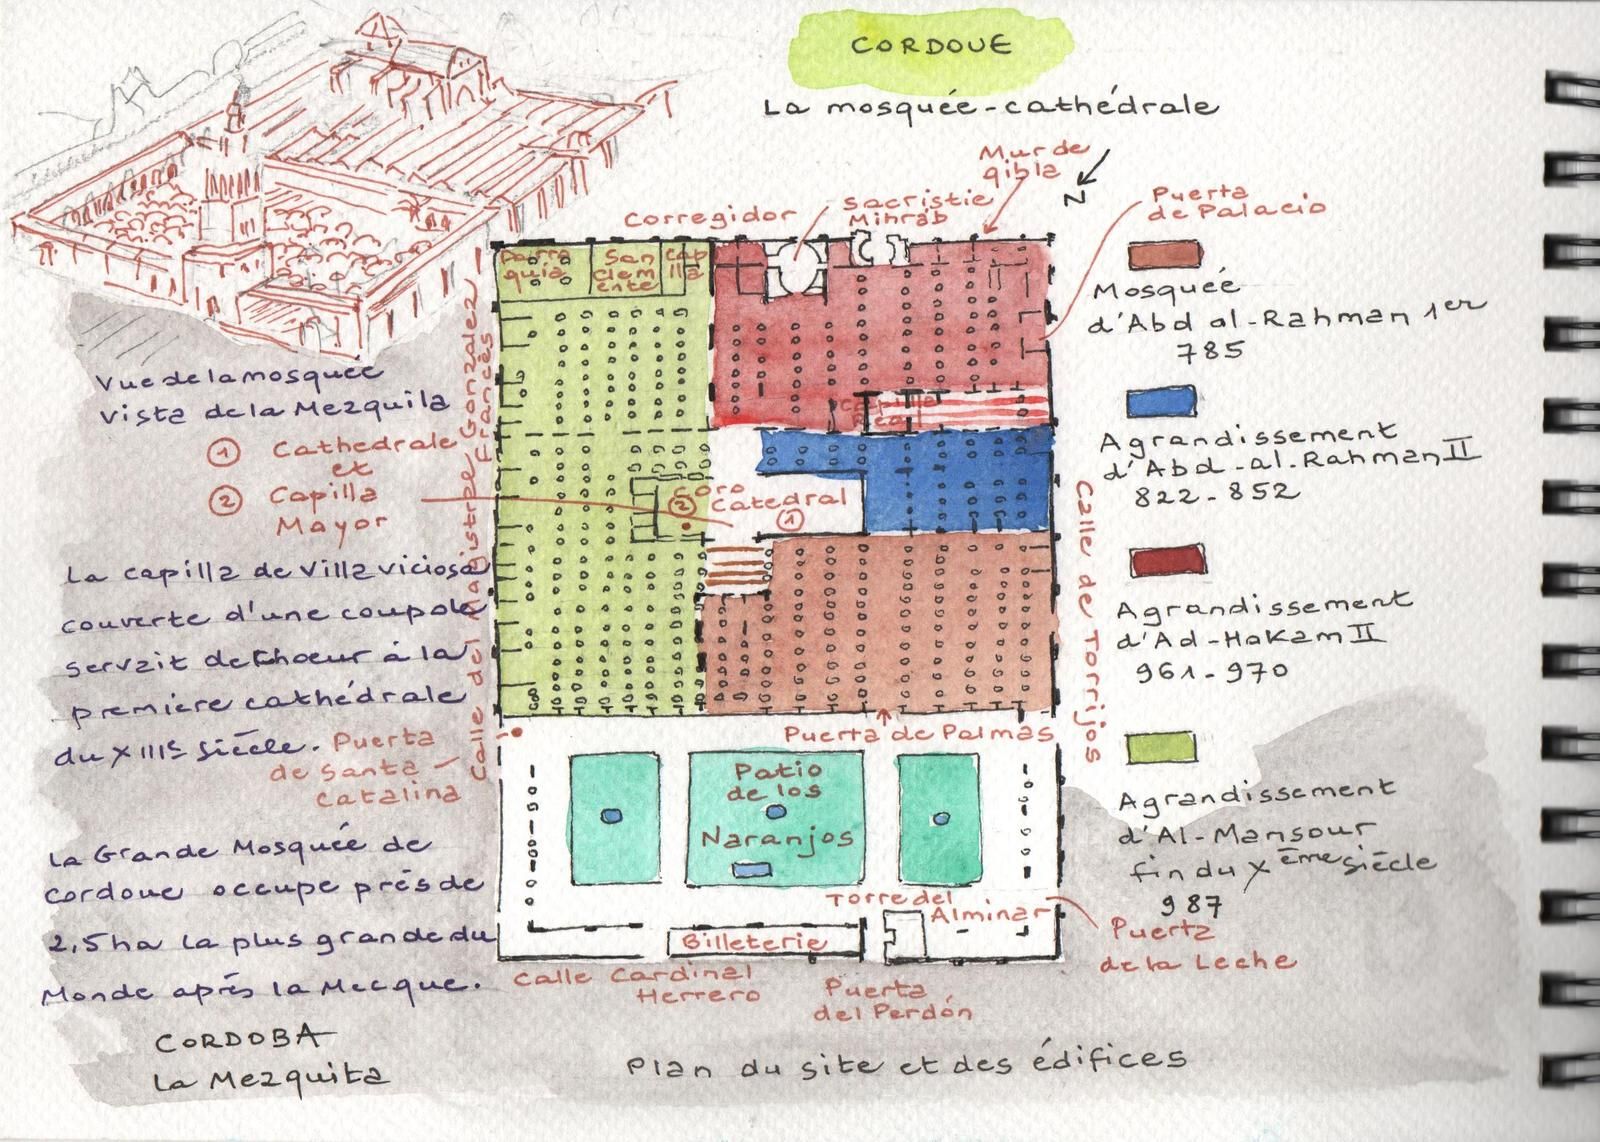 CORDOUE
La mosquée-cathédrale
Mur de
qibla
N
Corregidor
Sacristie
Mihrab
Puerta
de Palacio
Parro
quia
San
clem
ente
Cap
illa
Capilla
Real
Mosquée
d'Abd al-Rahman 1er
785
Agrandissement
d'Abd-al-Rahman II
822-852
Agrandissement
d'Ad-Hakam II
961-970
Agrandissement
d'Al-Mansour
fin du Xème siècle
987
Vue de la mosquée
Vista de la Mezquila
1 Cathedrale
et
2 Capilla
Mayor
Calle del Magistral Gonzalez
Francés
Coro
2 Catedral
1
Calle de Torrijos
La capilla de Villaviciosa
couverte d'une coupole
servait de choeur à la
première cathédrale
du XIIIe siècle.
Puerta
de Santa
Catalina
Puerta de Palmas
Patio
de los
Naranjos
La Grande Mosquée de
Cordoue occupe près de
2,5ha la plus grande du
Monde après la Mecque.
Torre del
Alminar
Billeterie
Puerta
de la Leche
Calle Cardinal
Herrero
Puerta
del Perdón
CORDOBA
La Mezquita
Plan du site et des édifices